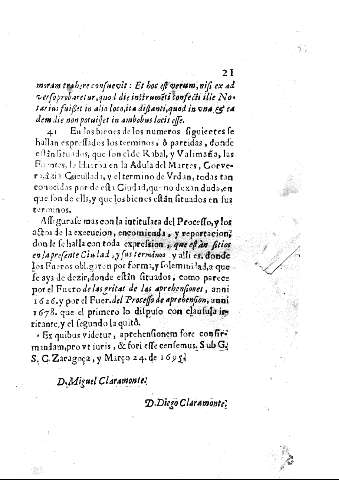 21
moram trahere consuevit: Et hoc est verum, nisi ex ad
verso probaretur, quod die instrumẽti confecti ille No-
tarius fuisset in alio loco, ita distanti, quod in vna, & ea
dem die non potuisset in ambobus locis esse.
41 En los bienes de los numeros siguientes se
hallan expressados los terminos, ò partidas, donde
estàn sitúados, que son el de Ribal, y Valimaña, las
Fuentes, la Huerta en la Adula del Martes, Corve-
ra, Cuculada, y el termino de Vrdan, todas tan
conocidas por de esta Ciudad, que no dexan duda, en
que son de ella, y que los bienes estàn situados en sus
terminos.
Assegurase mas con la intitulata del Processo, y los
actos de la execucion, encomienda, y reportacion,
donde se halla con toda expression, que estàn sitios
en la presente Ciudad, y sus terminos y alli es, donde
los Fueros obligaron por forma, y solemnidad, a que
se aya de dezir, donde estàn situados, como parece
por el Fuero de las gritas de las aprehensiones, anni
1626. y por el Fuer. del Processo de aprehension, anni
1678. que el primero lo dispuso con clausula ir-
ritante, y el segundo la quitò.
Ex quibus videtur, aprehensionem fore confir-
mandam, prout iuris, & fori esse censemus. Sub G.
S. C. Zaragoça, y Março 24. de 1695.
D. Miguel Claramonte.
D. Diego Claramonte.